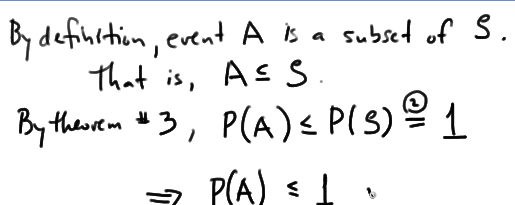 By definition, event A is a subset of S.
That is, A ⊆ S.
By theorem #3, P(A) ≤ P(S) ②= 1
⇒ P(A) ≤ 1.